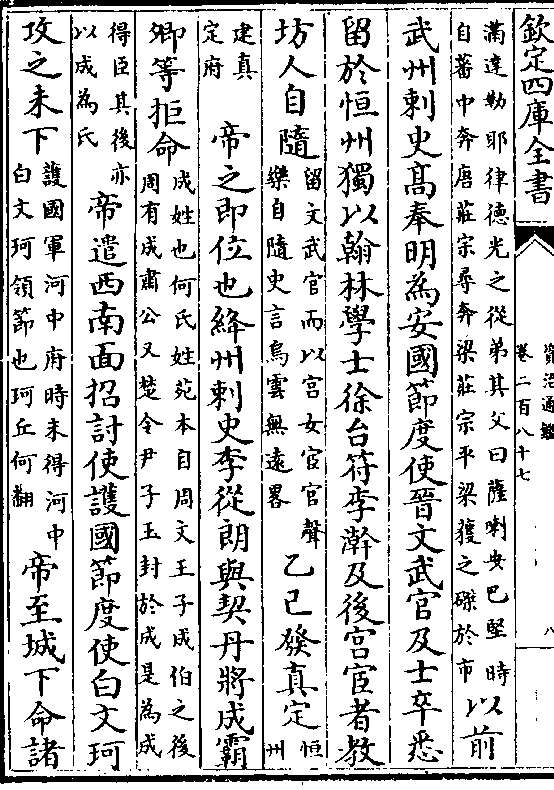 欽定四庫全書
資治通鑑
卷二百八十七
八
滿達勒耶律德光之從弟其父曰薩喇安巴堅時
自蕃中奔唐莊宗尋奔梁莊宗平梁獲之磔於市以前
武州刺史髙奉明為安國節度使晉文武官及士卒悉
留於恒州獨以翰林學士徐台符李澣及後宮宦者教
坊人自隨
留文武官而以宫女宦官聲
樂自隨史言烏雲無遠畧
乙己發真定
恒州
建真
定府
帝之即位也絳州刺史李從朗與契丹將成霸
卿等拒命
成姓也何氏姓苑本自周文王子成伯之後
周有成肅公又楚令尹子玉封於成是為成
得臣其後亦
以成為氏
帝遣西南面招討使護國節度使白文珂
攻之未下
護國軍河中府時未得河中
白文珂領節也珂丘何翻
帝至城下命諸